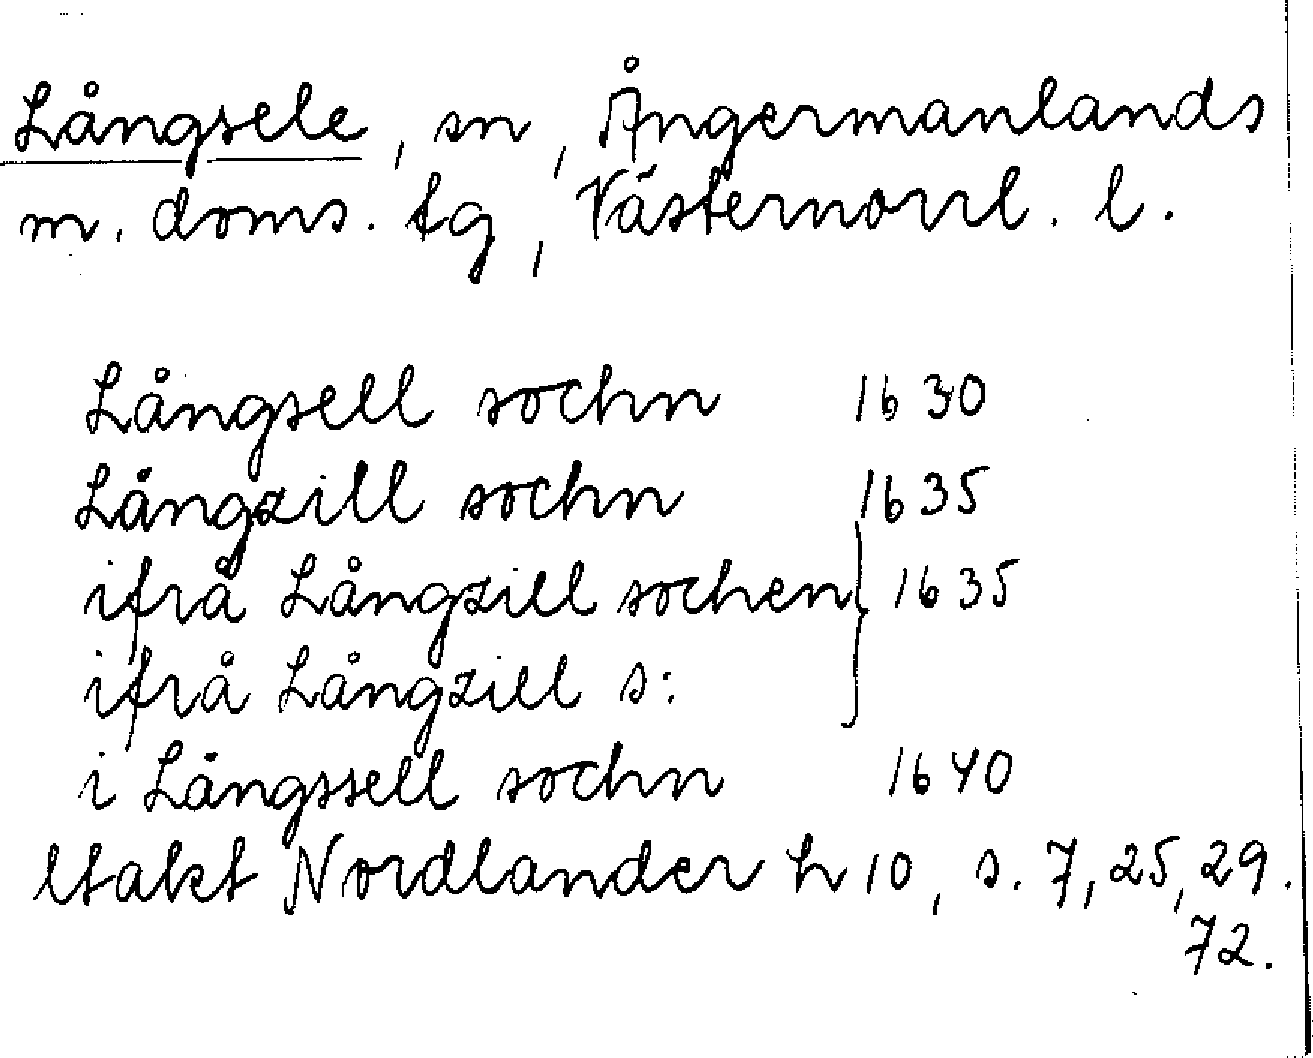 Långsele, sn, Ångermanlands
m. doms. tg, Västernorrl. l.
Långsell sochn 1630
Långzill sochn 1635
ifrå Långzill sochen } 1635
ifrå Långzill s:
i Långssell sochn 1640
Nordlander h 10, s. 7, 25, 29.
72.